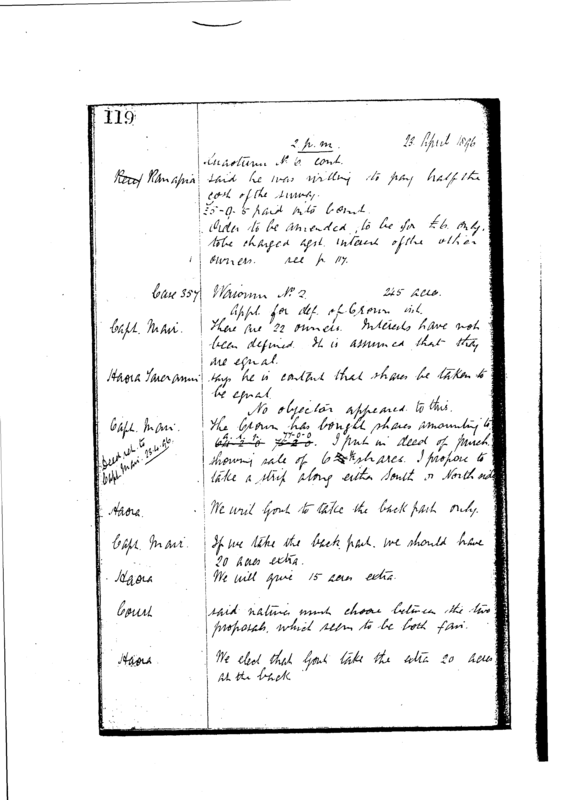 119
2 p.m. 23 April 1896
No 6. cont.
Ranapia said he was willing to pay half the
cost of the survey.
£5-0-5 paid into Court.
Order to be amended, to be for £6. only,
to be charged agst. interest of the other
owners. see p 117.
Case 357 No 2. 245 acres.
Appl. for def. of Crown int.
Capt. Mair. There are 22 owners. Interests have not
been defined. It is assumed that they
are equal.
Haora says he is content that shares be taken to
be equal
No objector appeared to this.
Capt. Mair. The Crown has bought shares amounting to
I put in deed of purch.
Deed ret. to
Capt. Mair. 23.4.96.
showing sale of 6 area. I propose to
take a strip along either South or North side
Haora. We wish Govt to take the back part only.
Capt. Mair. If we take the back part, we should have
20 acres extra.
Haora We will give 15 acres extra.
Court said natives must choose between the two
proposals, which seem to be both fair.
Haora We elect that Govt take the extra 20 acres
at the back